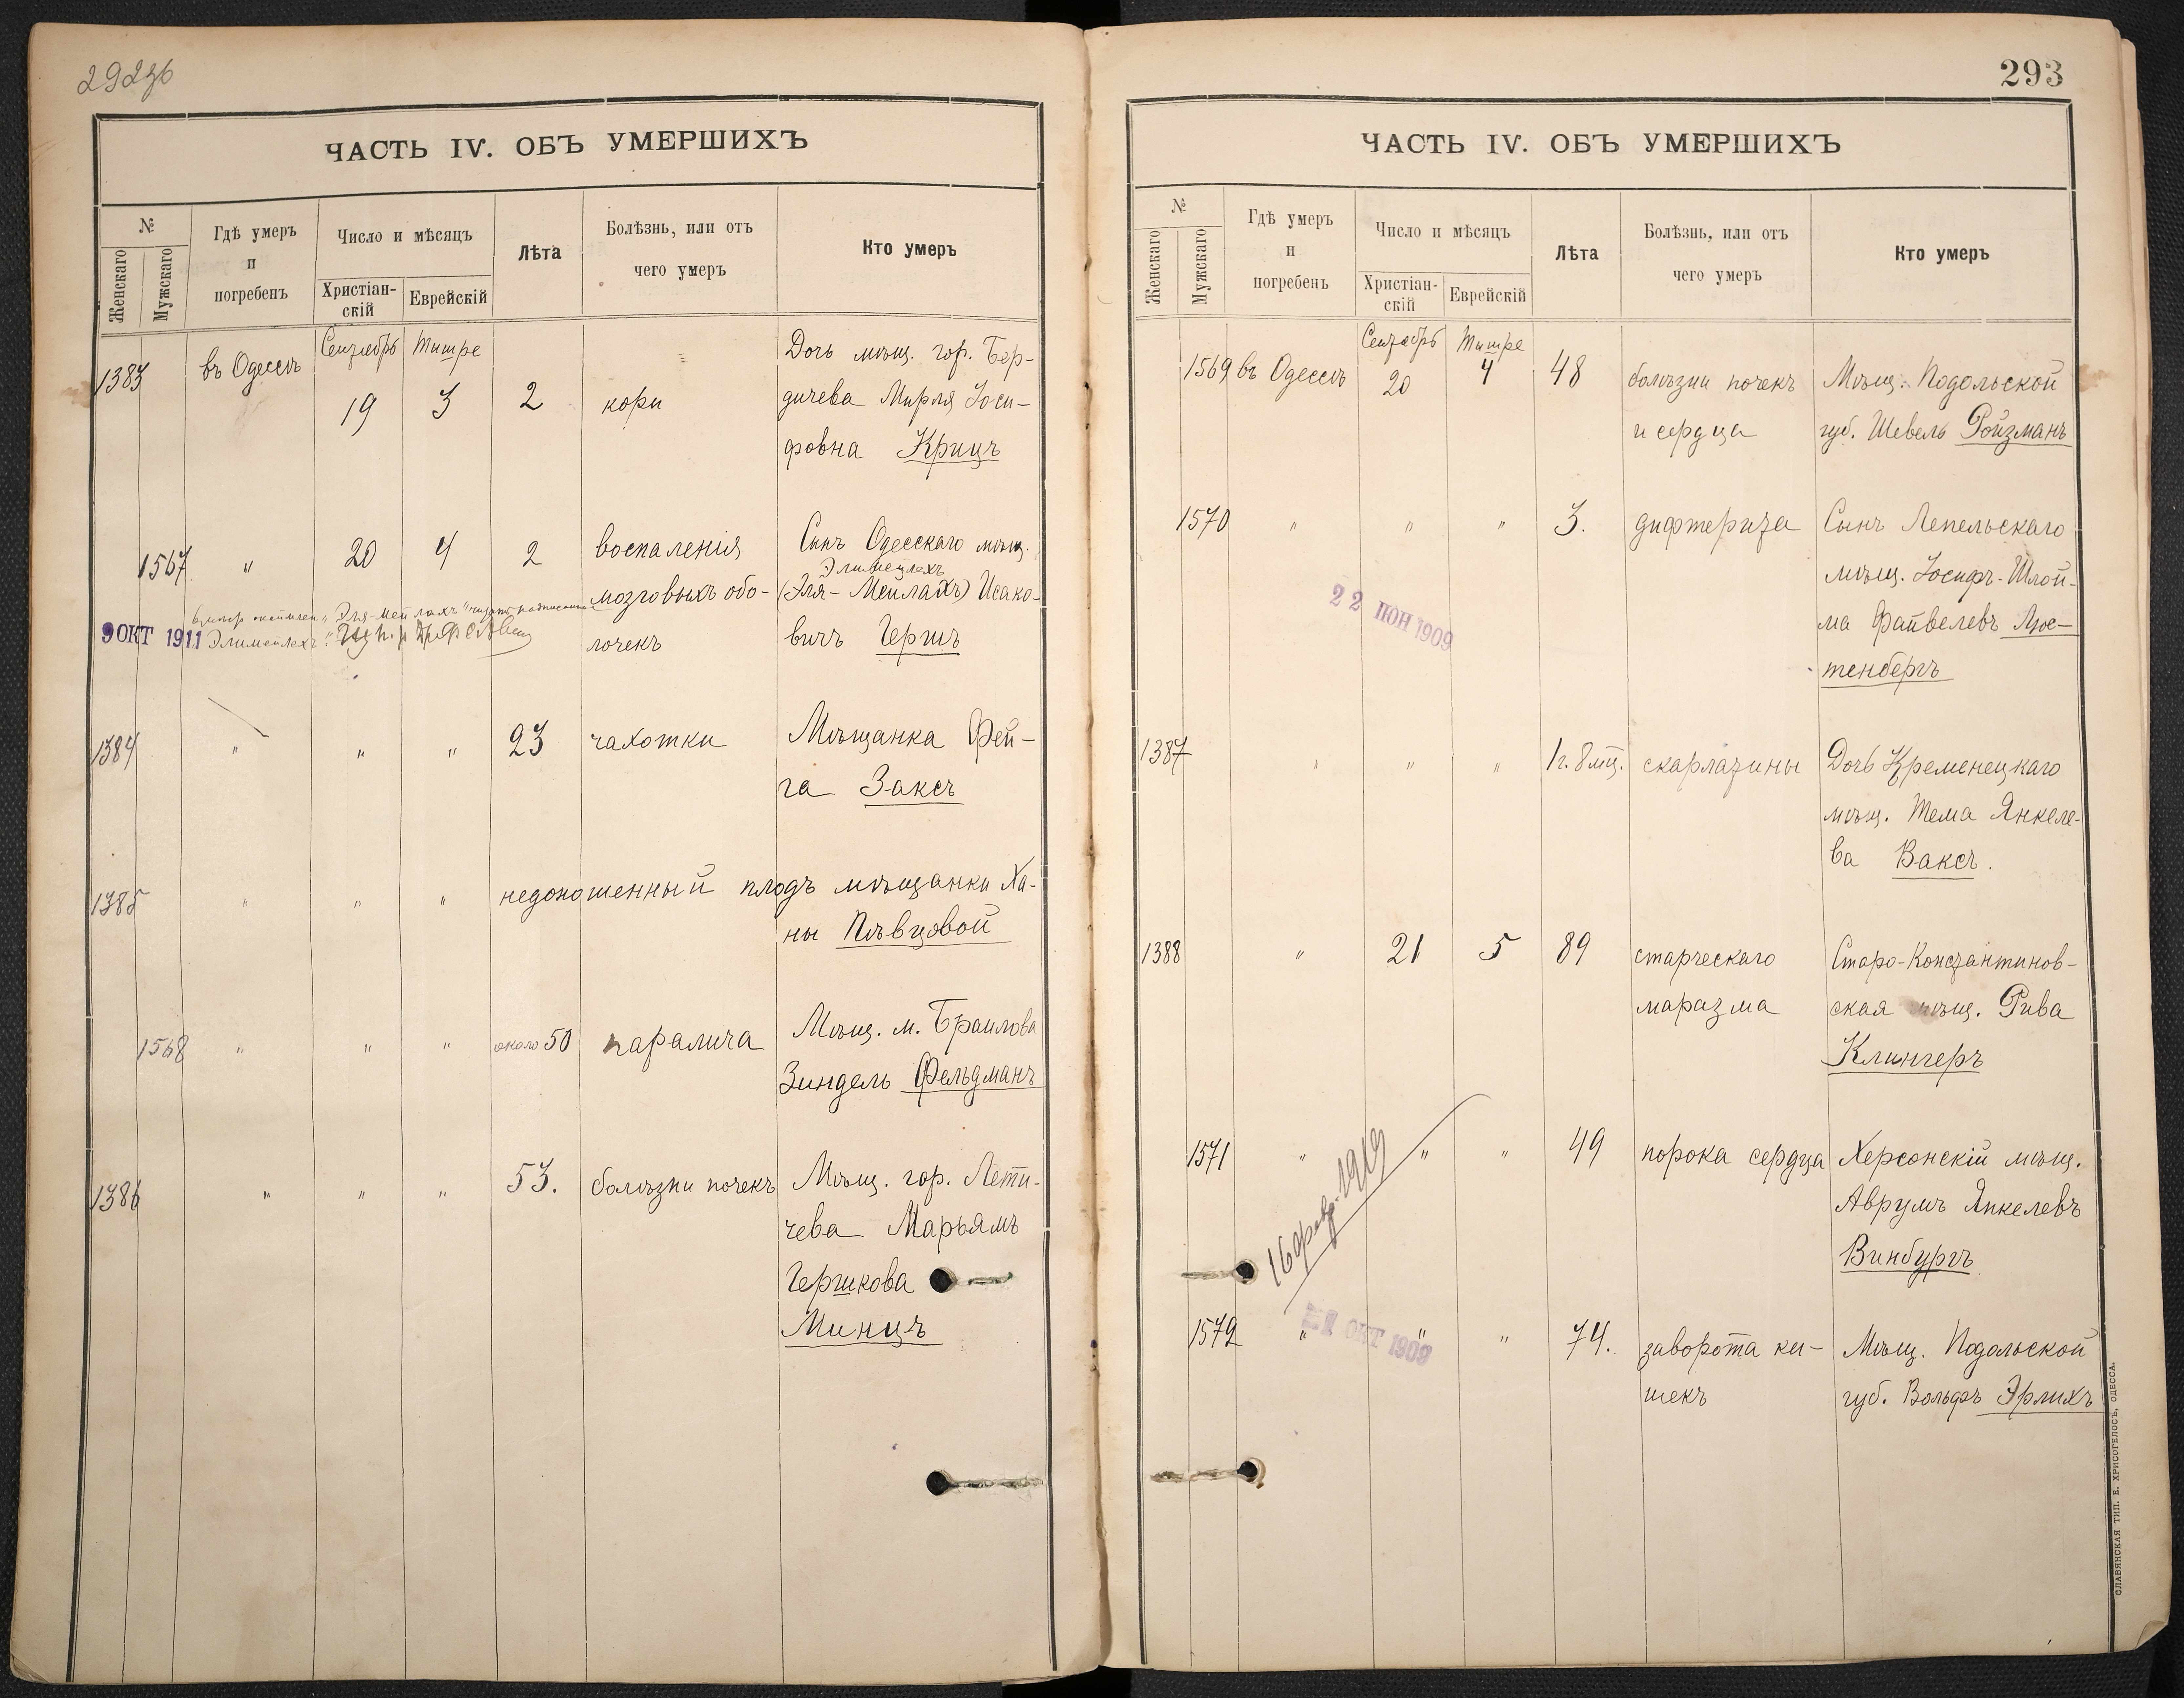 292об
ЧАСТЬ IV. ОБЪ УМЕРШИХЪ
№
Женскаго
Мужскаго
Гдѣ умеръ
и
погребенъ
Число и мѣсяцъ
Христіан-
скій
Еврейскій
Лѣта
Болѣзнь, или отъ
чего умеръ
Кто умеръ
1383 въ Одессѣ Сентябрь 19 Тишре 3 2 кори Дочь мѣщ. гор. Бер-
дичева Мирля Іоси-
фовна Крицъ
1567 " 20 4 2 воспаленія Сынъ Одесскаго мѣщ.
Элимейлехъ
мозговыхъ обо- (Эля-Мейлахъ) Исако-
лочекъ вичъ Гершъ
"Эля-Мейлахъ"
9 ОКТ 1911 Элимейлехъ
1384 " " " 23 чахотки Мѣщанка Фей-
га Заксъ
1385 " " " недоношенный плодъ мѣщанки Ха-
ны Пѣвцовой
1568 " " " около 50 паралича Мѣщ. м. Браилова
Зиндель Фельдманъ
1386 " " " 53. болѣзни почекъ Мѣщ. гор. Лети-
чева Марьямъ
Гершкова
Минцъ
293
ЧАСТЬ IV. ОБЪ УМЕРШИХЪ
№
Женскаго
Мужскаго
Гдѣ умеръ
и
погребенъ
Число и мѣсяцъ
Христіан-
скій
Еврейскій
Лѣта
Болѣзнь, или отъ
чего умеръ
Кто умеръ
1569 въ Одессѣ Сентябрь 20 Тишре 4 48 болѣзни почекъ Мѣщ. Подольской
и сердца губ. Шевель Ройзманъ
1570 " " " 3. дифтерита Сынъ Лепельскаго
мѣщ. Іосифъ-Шлой-
ма Файвелевъ Люс-
тенбергъ
22 ІЮН 1909
1387 " " " 1г. 8 мц. скарлатины Дочь Кременецкаго
мѣщ. Тема Янкеле-
ва Ваксъ.
1388 " 21 5 89 старческаго Старо-Константинов-
маразма ская мѣщ. Рива
Клингеръ
1571 " " " 49 порока сердца Херсонскій мѣщ.
Аврумъ Янкелевъ
Винбургъ
16 февр. 1919
1572 " " " 74. заворота ки- Мѣщ. Подольской
шекъ губ. Вольфъ Эрлихъ
ОКТ 1909
СЛАВЯНСКАЯ ТИП. Е. ХРИСОГЕЛОСЪ, ОДЕССА.